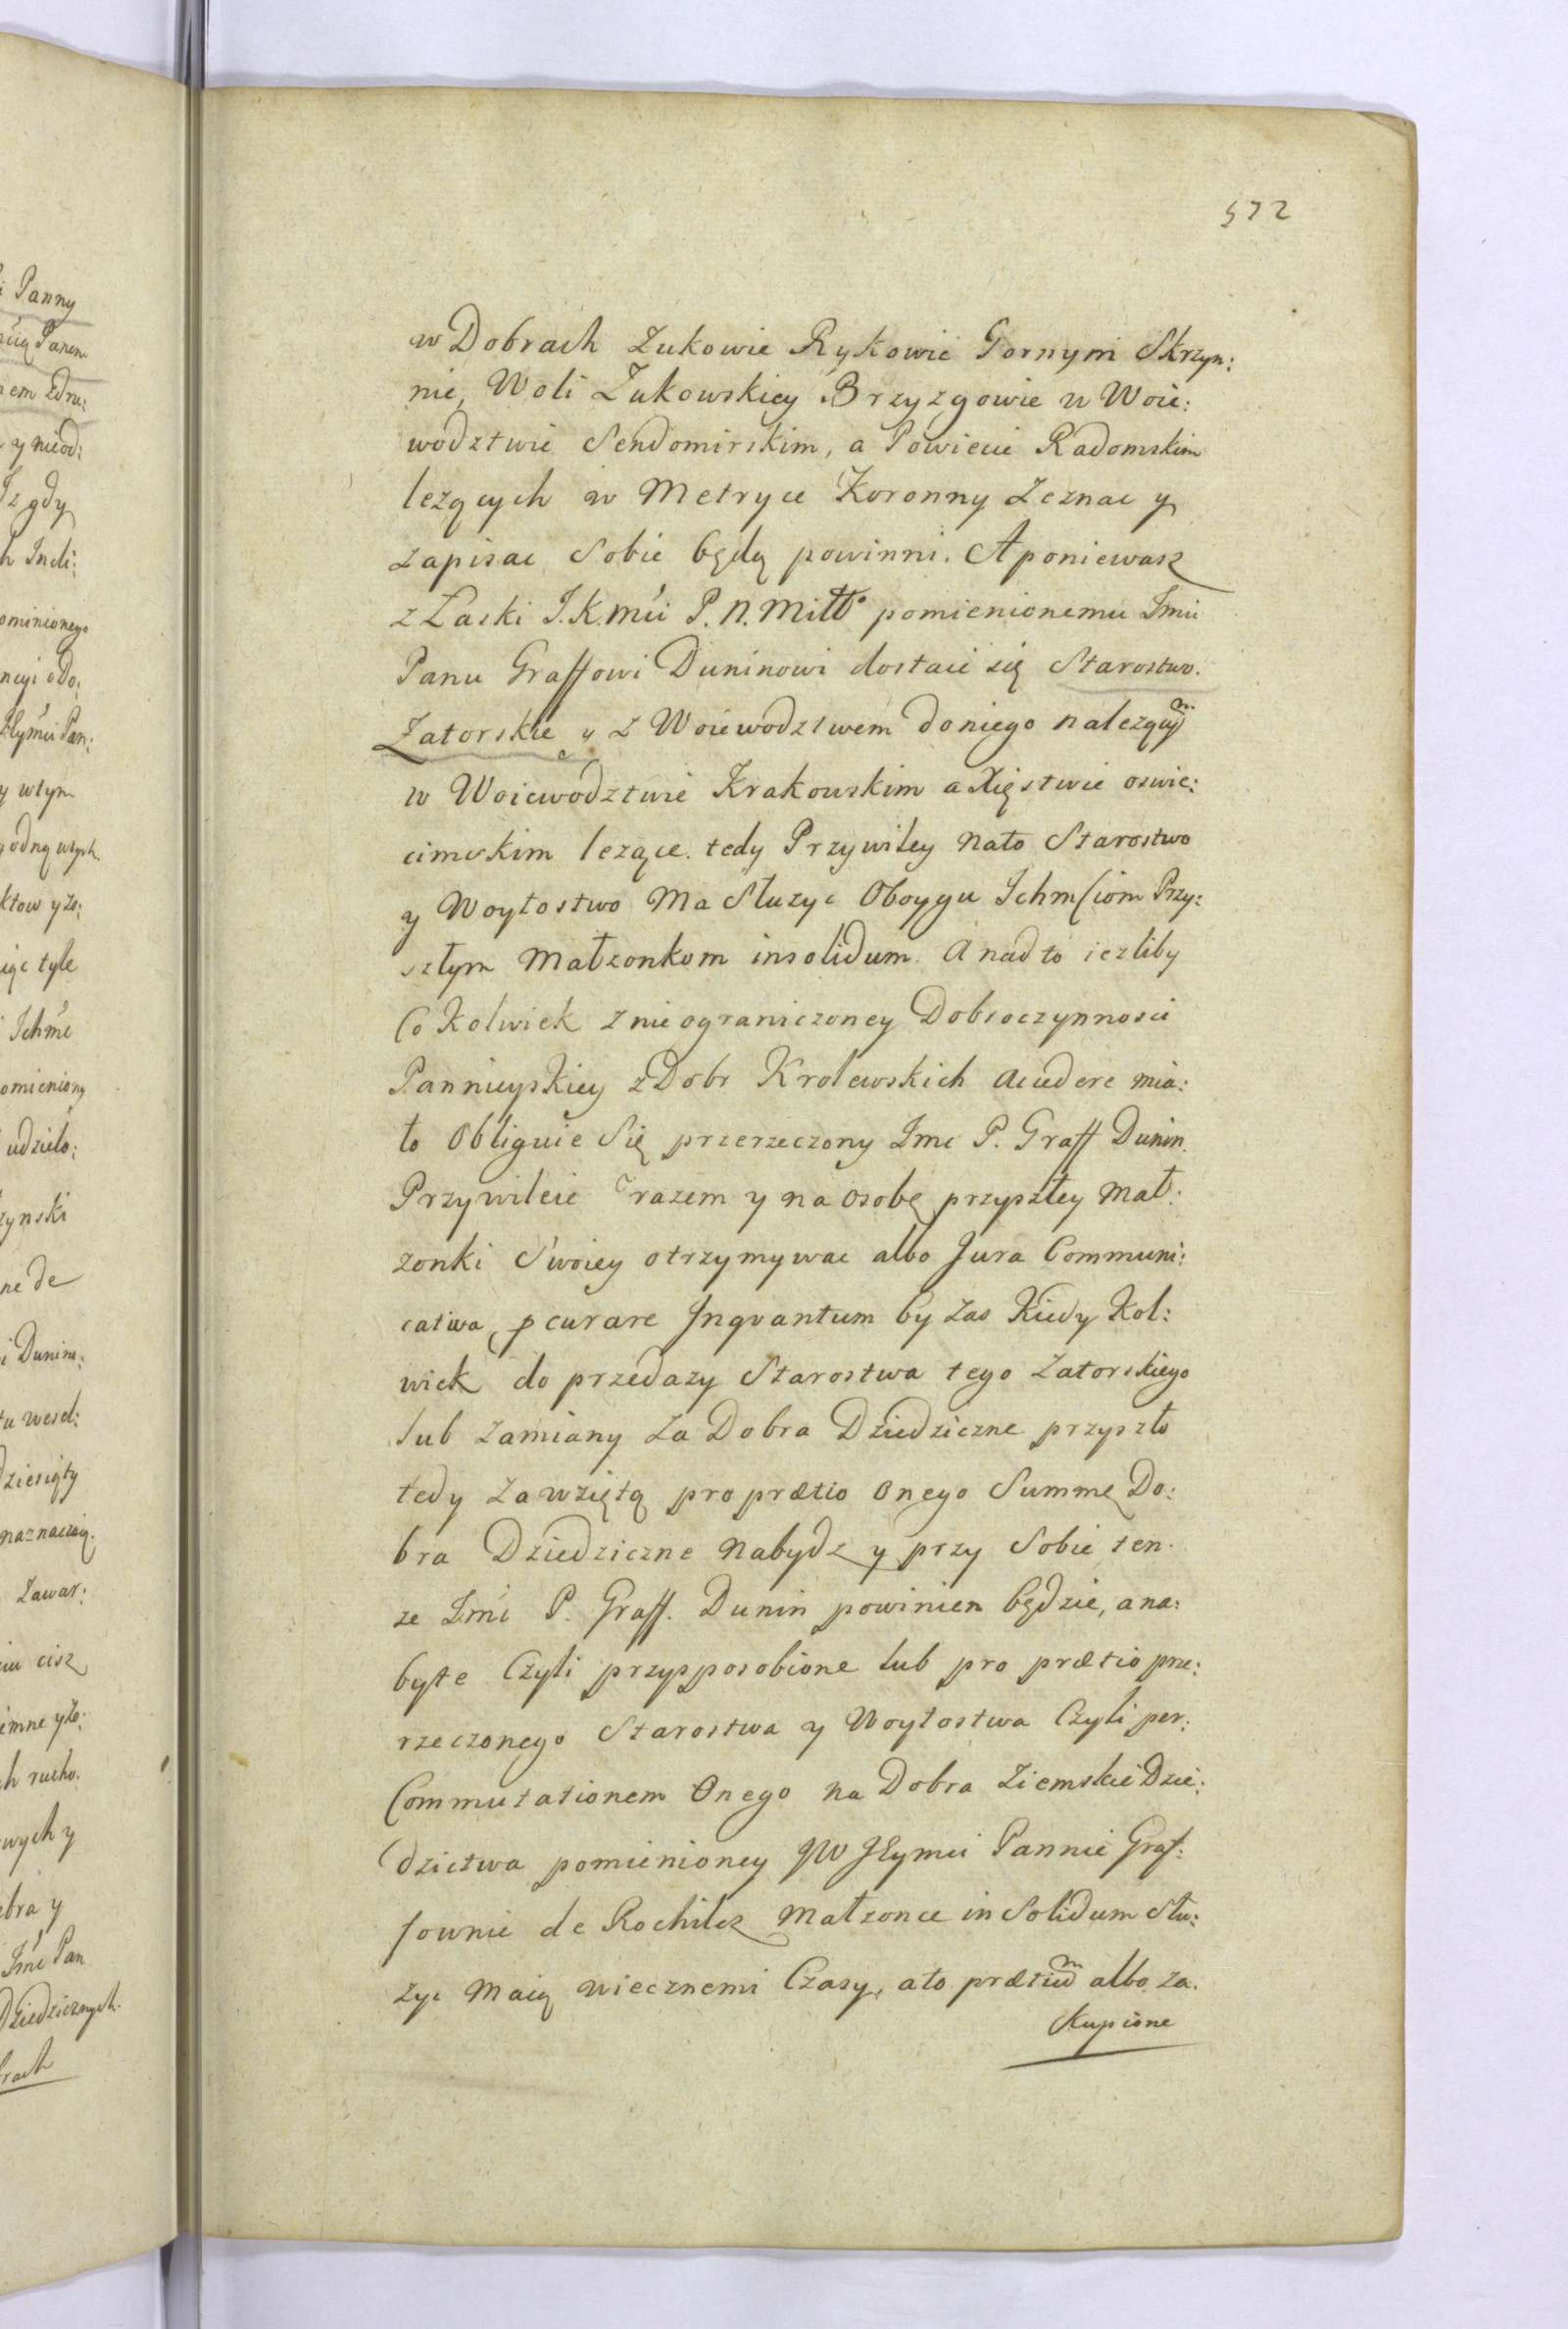 572
w Dobrach Zukowie Rykowie Gornym Skrzyn:
nie, Woli Zukowskiey Brzyzgowie w Woie:
wodztwie Sendomirskim, a Powiecie Radomskim
lezących w Metryce Koronny Zeznac y
zapisac Sobie będą powinni. A poniewasz
z Łaski J.K.Mći P.N.Miłło pomienionemu Jmći
Panu Graffowi Duninowi dostaie się Starostwo
Zatorskie y z Woiewodztwem do niego nalezącym
w Woiewodztwie Krakowskim a Xięstwie oswie:
cimskim lezące. tedy Przywiley na to Starostwo
y Woytostwo Ma Służyc Oboygu Ichmściom Przy:
szłym Małzonkom insolidum. A nad to iezliby
Co Kolwiek z nieograniczoney Dobroczynnosci
Pannieyskiey z Dobr Krolewskich accedere mia:
ło Obliguie Się przerzeczony Jmć P. Graff Dunin
Przywileie razem y na osobę przyszłey Mał:
zonki Swoiey otrzymywac albo Jura Communi:
cativa pcurare Inqvantum by zas Kiedy Kol:
wiek do przedazy Starostwa tego Zatorskiego
lub zamiany za Dobra Dziedziczne przyszło
tedy za wziętą pro prætio onego Summę Do:
bra Dziedziczne nabydz y przy Sobie ten
ze Jmć P. Graff. Dunin powinien będzie, a na:
byte Czyli przypposobione lub pro prætio prze:
rzeczonego Starostwa y Woytostwa Czyli per
Commutationem Onego na Dobra Ziemskie Dzie:
dzictwa pomienioney JW JEymci Pannie Graf:
fownie de Rochilcz Małzonce in Solidum Słu:
zyc Maią wiecznemi Czasy, a to prætium albo za.
Kupione